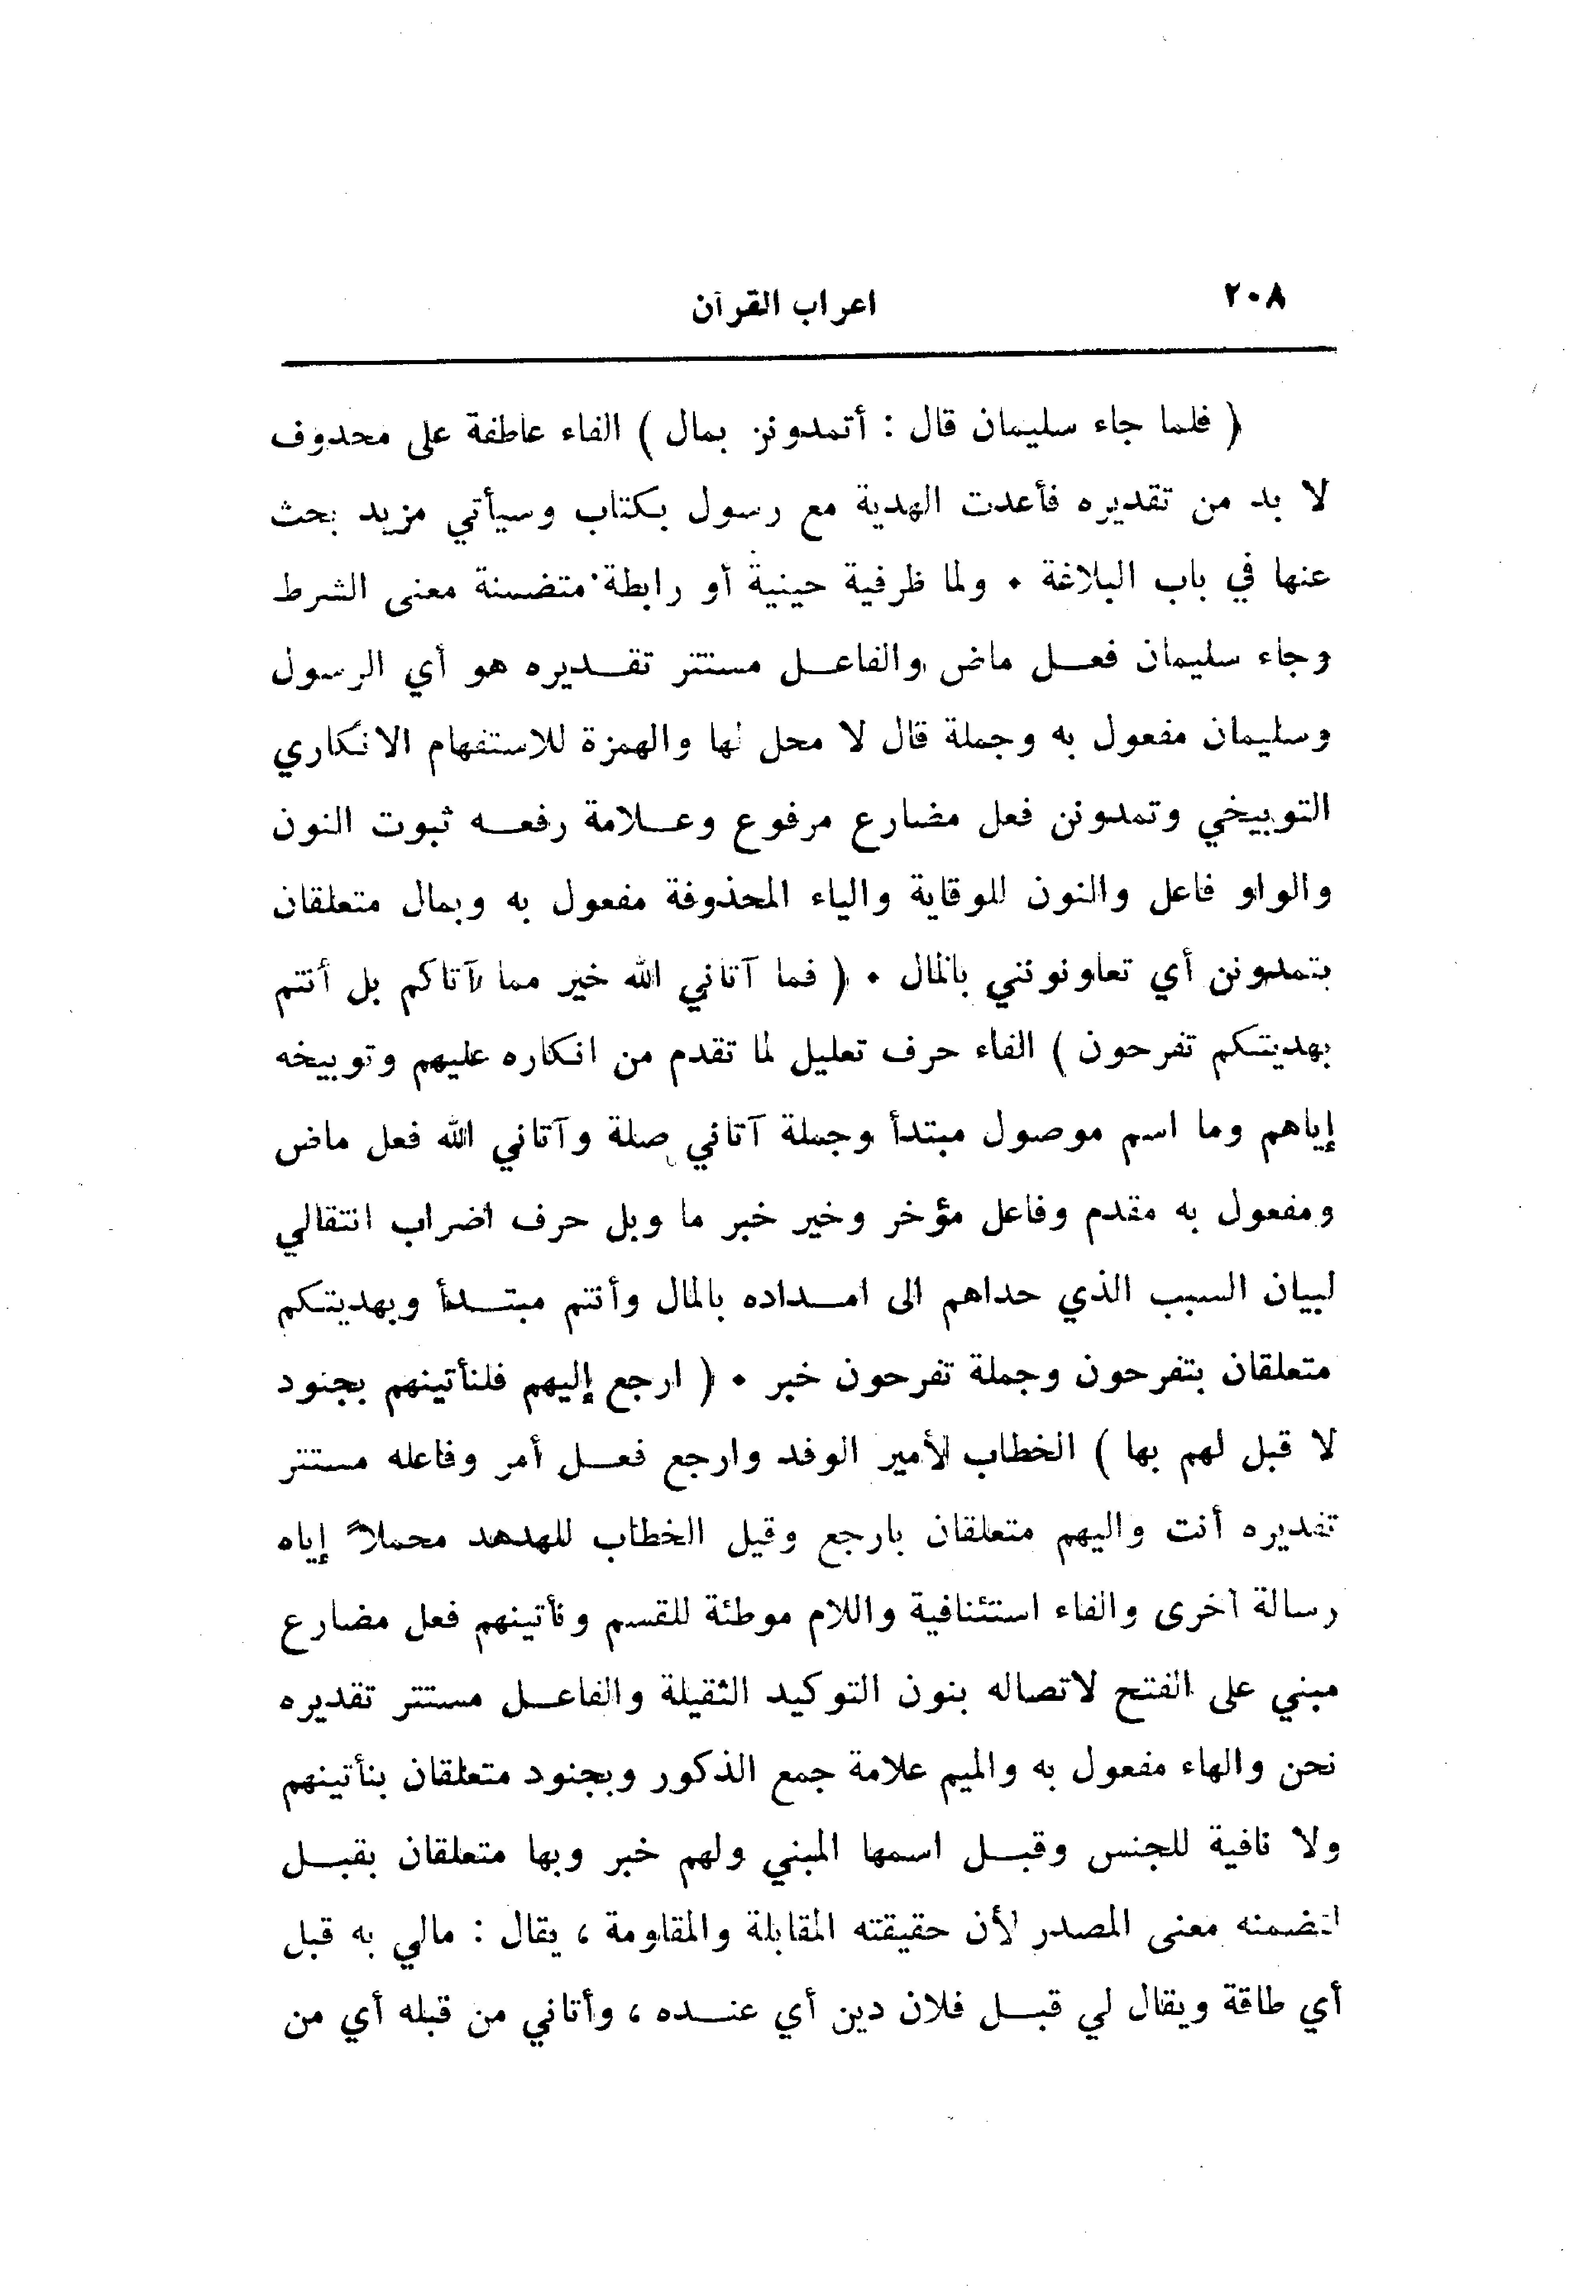 ٢٠٨ اعراب القرآن
( فلما جاء سليمان قال : أتمدونن بمال ) الفاء عاطفة على محذوف
لا بد من تقديره فأعدت الهدية مع رسول بكتاب وسيأتي مزيد بحث
عنها في باب البلاغة ٠ ولما ظرفية حينية أو رابطة متضمنة معنى الشرط
وجاء سليمان فعل ماض والفاعل مستتر تقديره هو أي الرسول
وسليمان مفعول به وجملة قال لا محل لها والهمزة للاستفهام الانكاري
التوبيخي وتمدونن فعل مضارع مرفوع وعلامة رفعه ثبوت النون
والواو فاعل والنون للوقاية والياء المحذوفة مفعول به وبمال متعلقان
بتمدونن أي تعاونونني بالمال ٠ ( فما آتاني الله خير مما آتاكم بل أنتم
بهديتكم تفرحون ) الفاء حرف تعليل لما تقدم من انكاره عليهم وتوبيخه
إياهم وما اسم موصول مبتدأ وجملة آتاني صلة وآتاني الله فعل ماض
ومفعول به مقدم وفاعل مؤخر وخير خبر ما وبل حرف اضراب انتقالي
لبيان السبب الذي حداهم الى امداده بالمال وأنتم مبتدأ وبهديتكم
متعلقان بتفرحون وجملة تفرحون خبر ٠ ( ارجع إليهم فلنأتينهم بجنود
لا قبل لهم بها ) الخطاب لأمير الوفد وارجع فعل أمر وفاعله مستتر
تقديره أنت واليهم متعلقان بارجع وقيل الخطاب للهدهد محملاً إياه
رسالة أخرى والفاء استئنافية واللام موطئة للقسم ونأتينهم فعل مضارع
مبني على الفتح لاتصاله بنون التوكيد الثقيلة والفاعل مستتر تقديره
نحن والهاء مفعول به والميم علامة جمع الذكور وبجنود متعلقان بنأتينهم
ولا نافية للجنس وقبل اسمها المبني ولهم خبر وبها متعلقان بقبل
لتضمنه معنى المصدر لأن حقيقته المقابلة والمقاومة ، يقال : مالي به قبل
أي طاقة ويقال لي قبل فلان دين أي عنده ، وأتاني من قبله أي من